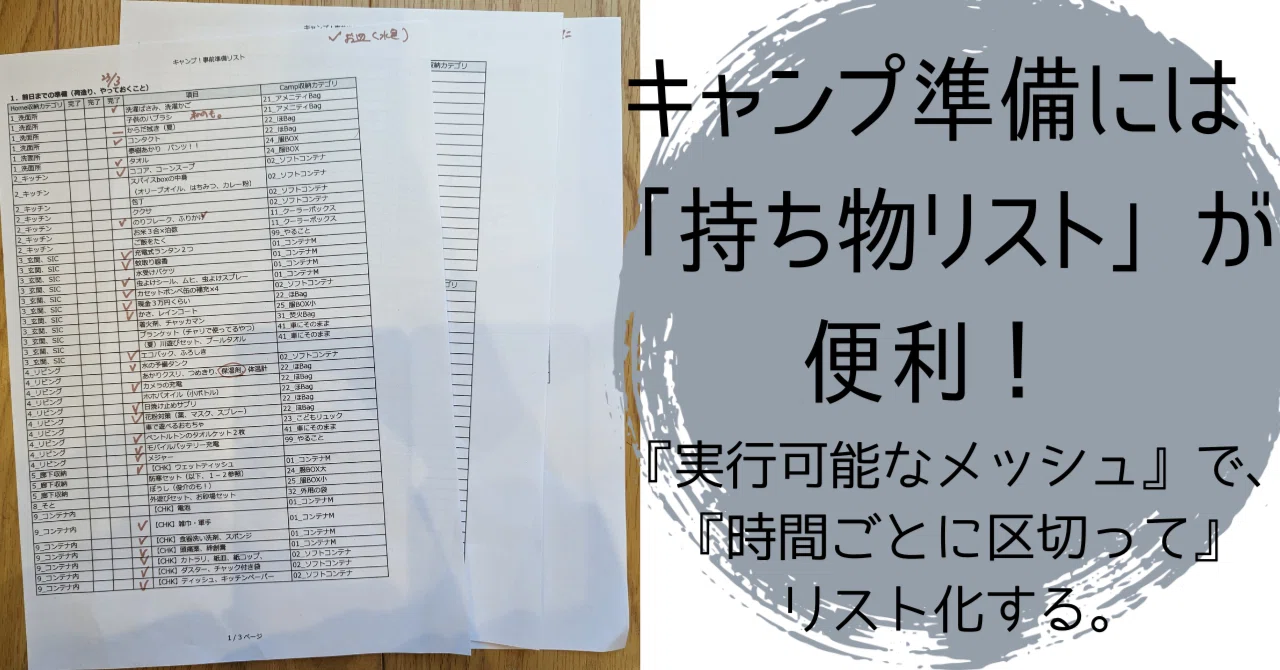 キャンプ!事前準備リスト
✓お皿(水色)
23/3
1.前日までの準備(荷造り、やっておくこと)
Home収納カテゴリ 完了 完了 完了 項目 Camp収納カテゴリ
1_洗面所 洗濯ばさみ、洗濯かご 21_アメニティBag
1_洗面所 子供のハブラシ 21_アメニティBag
1_洗面所 からだ拭き(夏) 22_ほBag
1_洗面所 コンタクト 22_ほBag
1_洗面所 あかり パンツ!! 24_服BOX
1_洗面所 タオル 24_服BOX
2_キッチン ココア、コーンスープ 02_ソフトコンテナ
2_キッチン スパイスboxの中身
(オリーブオイル、はちみつ、カレー粉) 02_ソフトコンテナ
2_キッチン 包丁 02_ソフトコンテナ
2_キッチン ククサ 02_ソフトコンテナ
2_キッチン のりフレーク、ふりかけ 11_クーラーボックス
2_キッチン お米3合×泊数 11_クーラーボックス
2_キッチン ご飯をたく 99_やること
3_玄関、SIC 充電式ランタン2つ 01_コンテナM
3_玄関、SIC 蚊取り線香 01_コンテナM
3_玄関、SIC 水受けバケツ 01_コンテナM
3_玄関、SIC 虫よけシール、ムヒ、虫よけスプレー 01_コンテナM
3_玄関、SIC カセットボンベ缶の補充×4 02_ソフトコンテナ
3_玄関、SIC 現金3万円くらい 22_ほBag
3_玄関、SIC かさ、レインコート 25_服BOX小
3_玄関、SIC 着火剤、チャッカマン 31_焚火Bag
3_玄関、SIC ブランケット(チャリで使ってるやつ) 41_車にそのまま
3_玄関、SIC (夏)川遊びセット、プールタオル 41_車にそのまま
3_玄関、SIC エコバック、ふろしき
4_リビング 水の予備タンク 02_ソフトコンテナ
4_リビング あかりクスリ、つめきり、(保湿剤)、体温計 22_ほBag
4_リビング カメラの充電 22_ほBag
4_リビング ホホバオイル(小ボトル) 22_ほBag
4_リビング 日焼け止めサプリ 22_ほBag
4_リビング 花粉対策(薬、マスク、スプレー) 22_ほBag
4_リビング 車で遊べるおもちゃ 23_こどもリュック
4_リビング ペンドルトンのタオルケット2枚 41_車にそのまま
4_リビング モバイルバッテリー充電 99_やること
4_リビング メジャー
5_廊下収納 【CHK】ウェットティッシュ 01_コンテナM
5_廊下収納 防寒セット(以下、1-2参照) 24_服BOX大
5_廊下収納 ぼうし(俊介のも!) 25_服BOX小
8_そと 外遊びセット、お砂場セット 32_外用の袋
9_コンテナ内 【CHK】電池 01_コンテナM
9_コンテナ内 【CHK】雑巾・軍手 01_コンテナM
9_コンテナ内 【CHK】食器洗い洗剤、スポンジ 01_コンテナM
9_コンテナ内 【CHK】頭痛薬、絆創膏 01_コンテナM
9_コンテナ内 【CHK】カトラリ、紙皿、紙コップ、 02_ソフトコンテナ
9_コンテナ内 【CHK】ダスター、チャック付き袋 02_ソフトコンテナ
9_コンテナ内 【CHK】ティッシュ、キッチンペーパー 02_ソフトコンテナ
1/3ページ
キャンプ準備には
「持ち物リスト」が
便利!
『実行可能なメッシュ』で、
『時間ごとに区切って』
リスト化する。